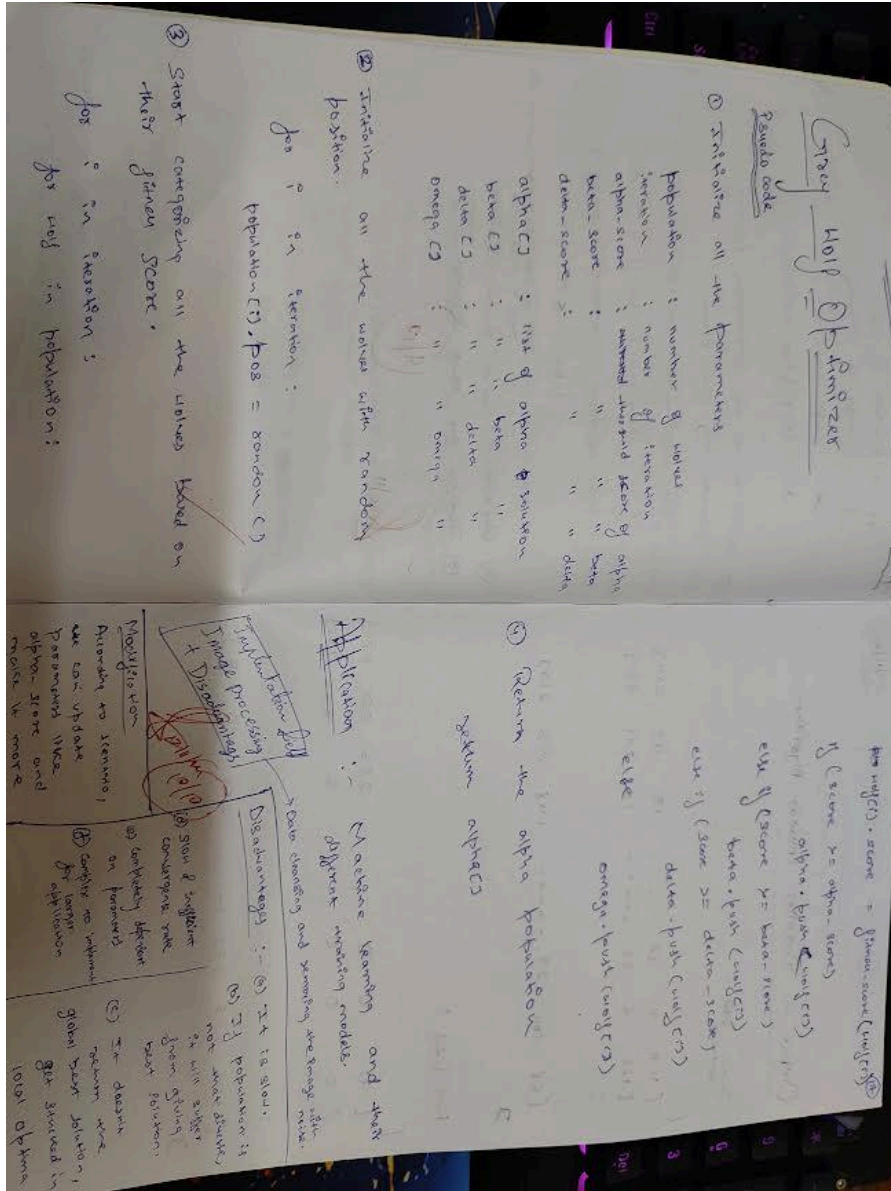 Grey Wolf Optimizer
Psuedo code
① Initialize all the parameters
population : number of wolves
iteration : number of iteration
alpha-score : threshold score of alpha
beta-score : " " " beta
delta-score : " " " delta
alpha[] : list of alpha solution
beta[] : " " beta "
delta[] : " " delta "
omega[] : " " omega "
② Initialize all the wolves with random
position.
for i in iteration :
population[i].pos = random()
③ Start categorizing all the wolves based on
their fitness score.
for i in iteration :
for wolf in population :
wolf[i].score = fitness-score(wolf[i])
if (score >= alpha-score)
alpha.push(wolf[i])
else if (score >= beta-score)
beta.push(wolf[i])
else if (score >= delta-score)
delta.push(wolf[i])
else
omega.push(wolf[i])
④ Return the alpha population
return alpha[]
Application :- Machine learning and their
different training models.
Implementation field
Image processing
+ Disadvantages
→ Data cleansing and removing the image with
noise.
Disadvantages :- (a) It is slow.
(b) If population is
not that diverse,
it will suffer
from giving
best solution.
(c) It doesn't
return the
global best solution,
get stucked in
local optima
(d) Slow & inefficient
convergence rate
(e) Completely dependent
on parameters
(f) Complex to implement
for larger
application
Modification
According to scenario,
we can update
parameters like
alpha-score and
make it more
Ctrl
Del